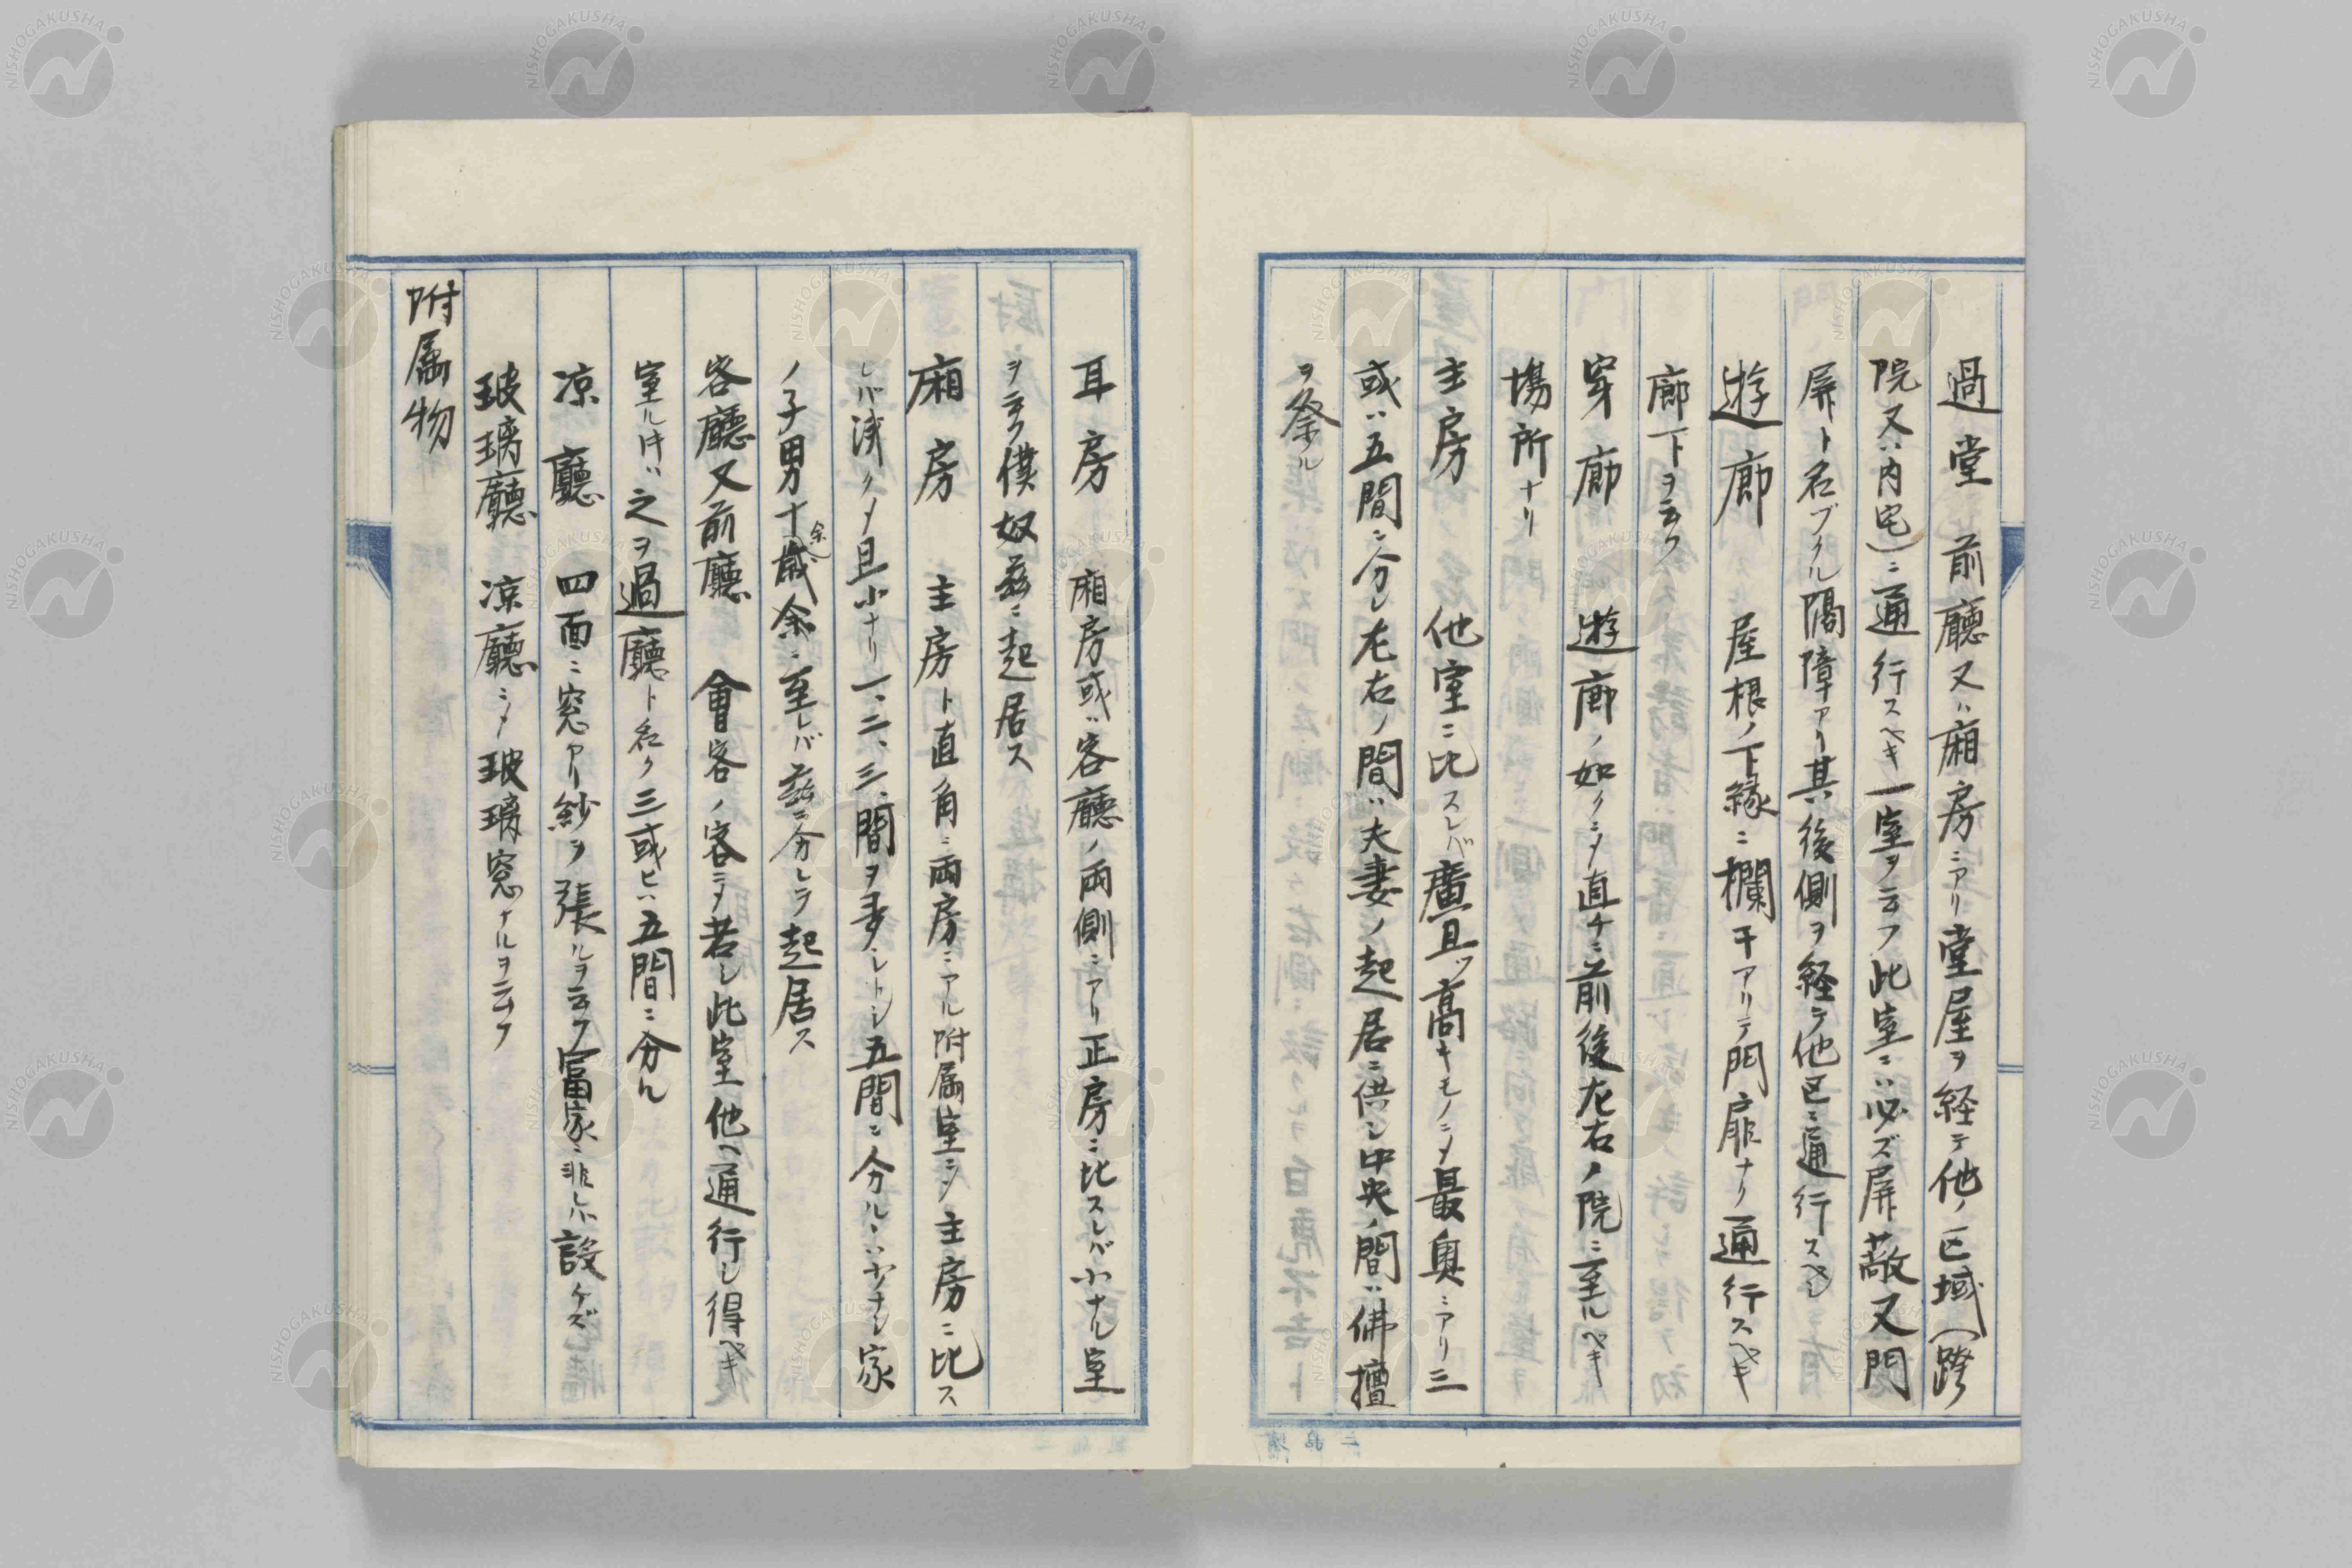 過堂 前廳又ハ廂房ニアリ堂屋ヲ経テ他ノ区域(跨
院又ハ内宅)ニ通行スベキ一室ヲ云フ此室ニハ必ズ屏蔽又門
屏ト名ヅクル隔障アリ其後側ヲ経テ他区ニ通行スベシ
遊廊 屋根ノ下縁ニ欄干アリテ門扉ナク通行スベキ
廊下ヲ云フ
穿廊 遊廊ノ如クシテ直チニ前後左右ノ院ニ至ルベキ
場所ナリ
主房 他室ニ比スレバ廣且ツ高キモノニメ最奥ニアリ三
或ハ五間ニ分レ左右ノ間ハ夫妻ノ起居ニ供シ中央ノ間ハ佛檀
ヲ祭ル
耳房 廂房或ハ客廳ノ両側ニアリ正房ニ比スレバ小ナル室
ヲ云フ僕奴茲ニ起居ス
廂房 主房ト直角ニ両房ニアル附属室ニシテ主房ニ比ス
レバ浅クメ且小ナリ一、二、三、間ヲ多シトシ五間ニ分ルヽハ少ナシ家
ノ子男十余歳余ニ至レバ茲ニ分レテ起居ス
客廳又前廳 會客ノ客ニメ若シ此室他ヘ通行シ得ベキ
室ルトキハ之ヲ過廳ト名ク三或ヒハ五間ニ分ル
凉廳 四面ニ窓アリ紗ヲ張ルヲ云フ富家ニ非レバ設ケズ
玻璃廳 凉廳ニメ玻璃窓ナルヲ云フ
附属物
NISHOGAKUSHA